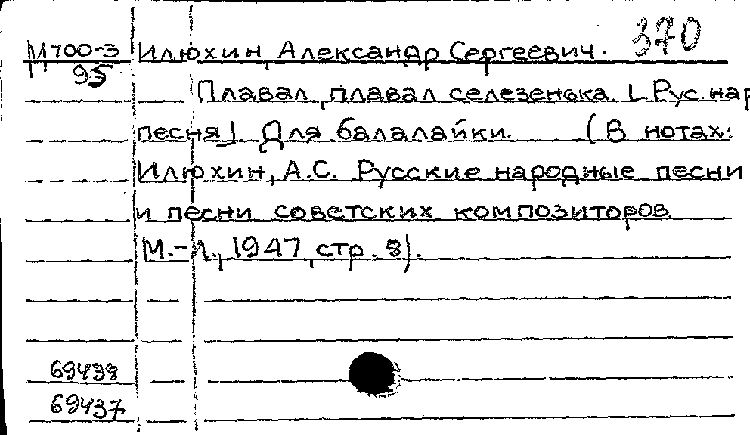 М700-3 Илюхин, Александр Сергеевич. 370
95 Плавал, плавал селезенька. [Рус. нар
песня] Для балалайки. (В нотах:
Илюхин, А.С. Русские народные песни
и песни советских композиторов
М.-Л., 1947, стр. 8).
69438
69437